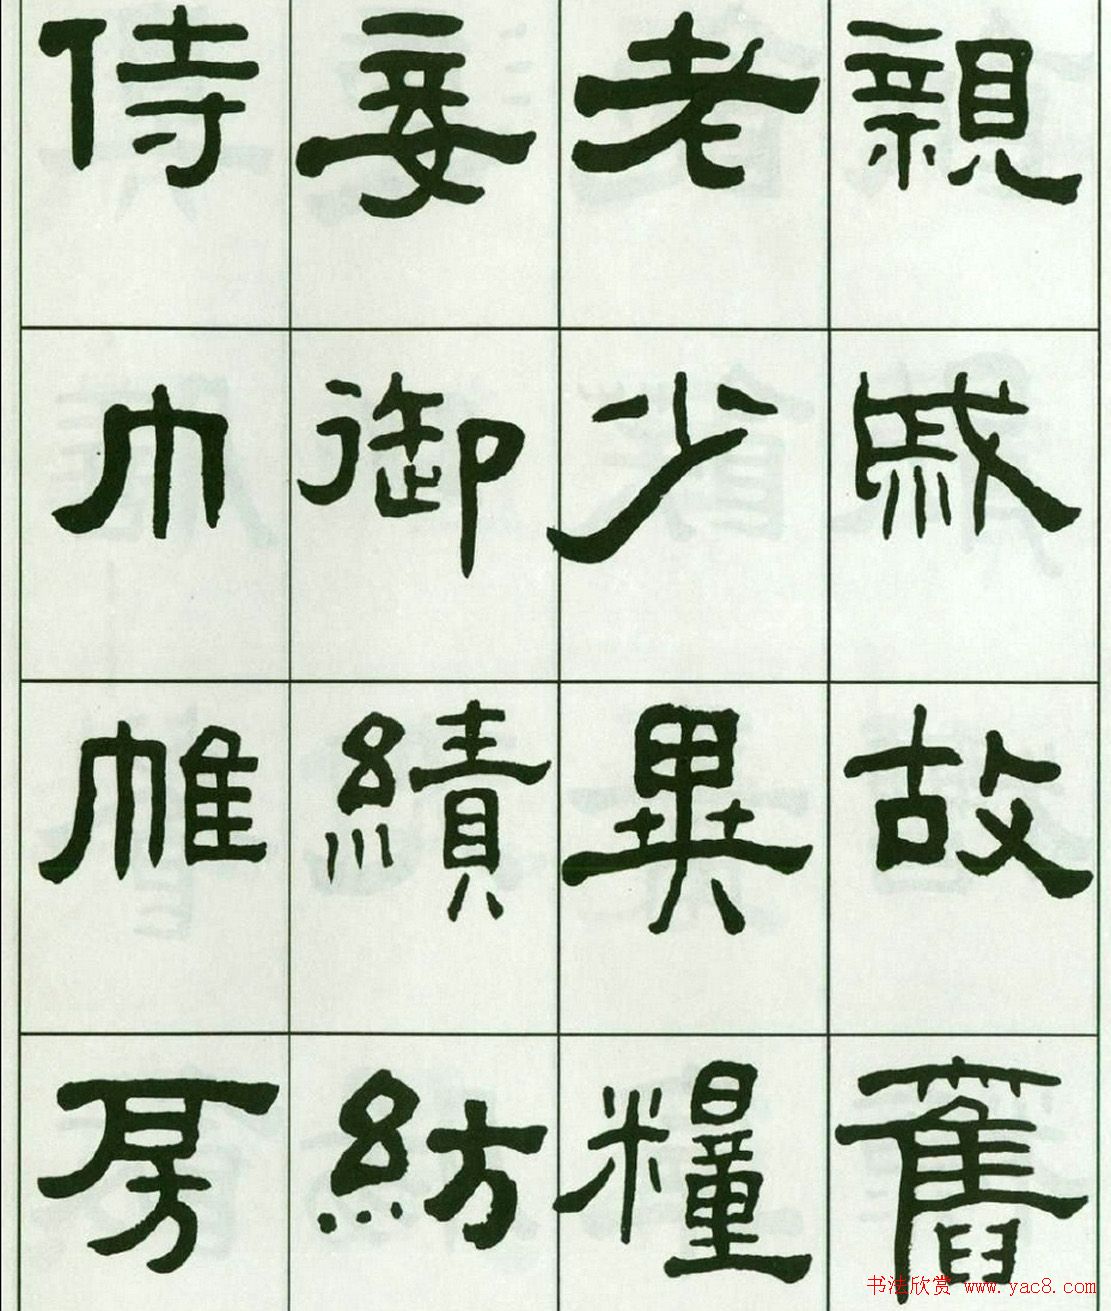 親戚故舊
老少異糧
妾御績紡
侍巾帷房
书法欣赏 www.yac8.com